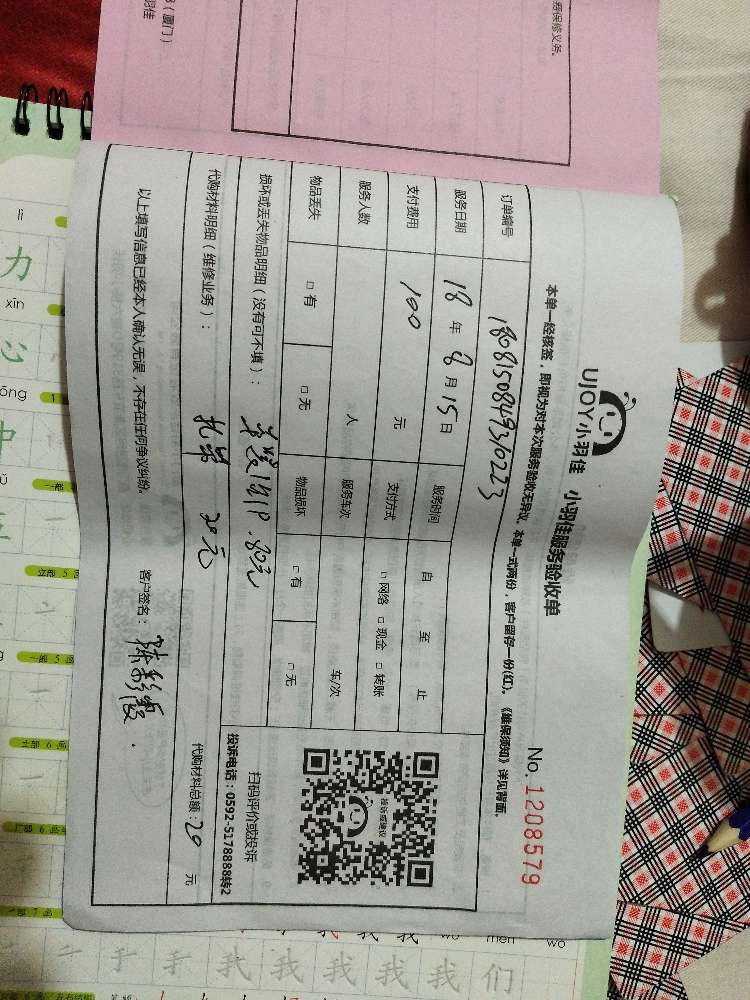 UJOY小羽佳 小羽佳服务验收单
No. 1208579
本单一经核签，即视为对本次服务验收无异议。本单一式两份，客户留存一份(红)。《维保须知》详见背面。
订单编号 180815084936223
服务日期 18 年 8 月 15 日 服务时间 自 至 止
支付费用 100 元 支付方式 □ 网络 □ 现金 □ 转账
服务人数 人 服务车次 车/次
物品丢失 □ 有 □ 无 物品损坏 □ 有 □ 无
投诉或建议
扫码评价或投诉
投诉电话：0592-5178888转2
损坏或丢失物品明细（没有可不填）：
80元
代购材料明细（维修业务）： 20元
代购材料总额：20 元
以上填写信息已经本人确认无误，不存在任何争议纠纷。
客户签名：陈彩霞
（厦门）
羽佳
修保修义务。
lì
力
xīn
心
中
我 我 我 我 我 们
men
wǒ